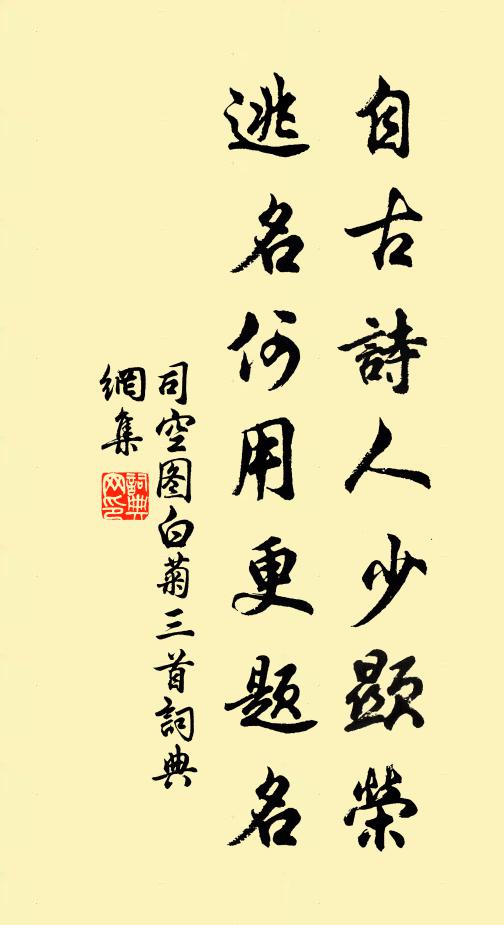 自古詩人少顯榮
逃名何用更題名
司空图白菊三首詞典
網集
詞典
网印